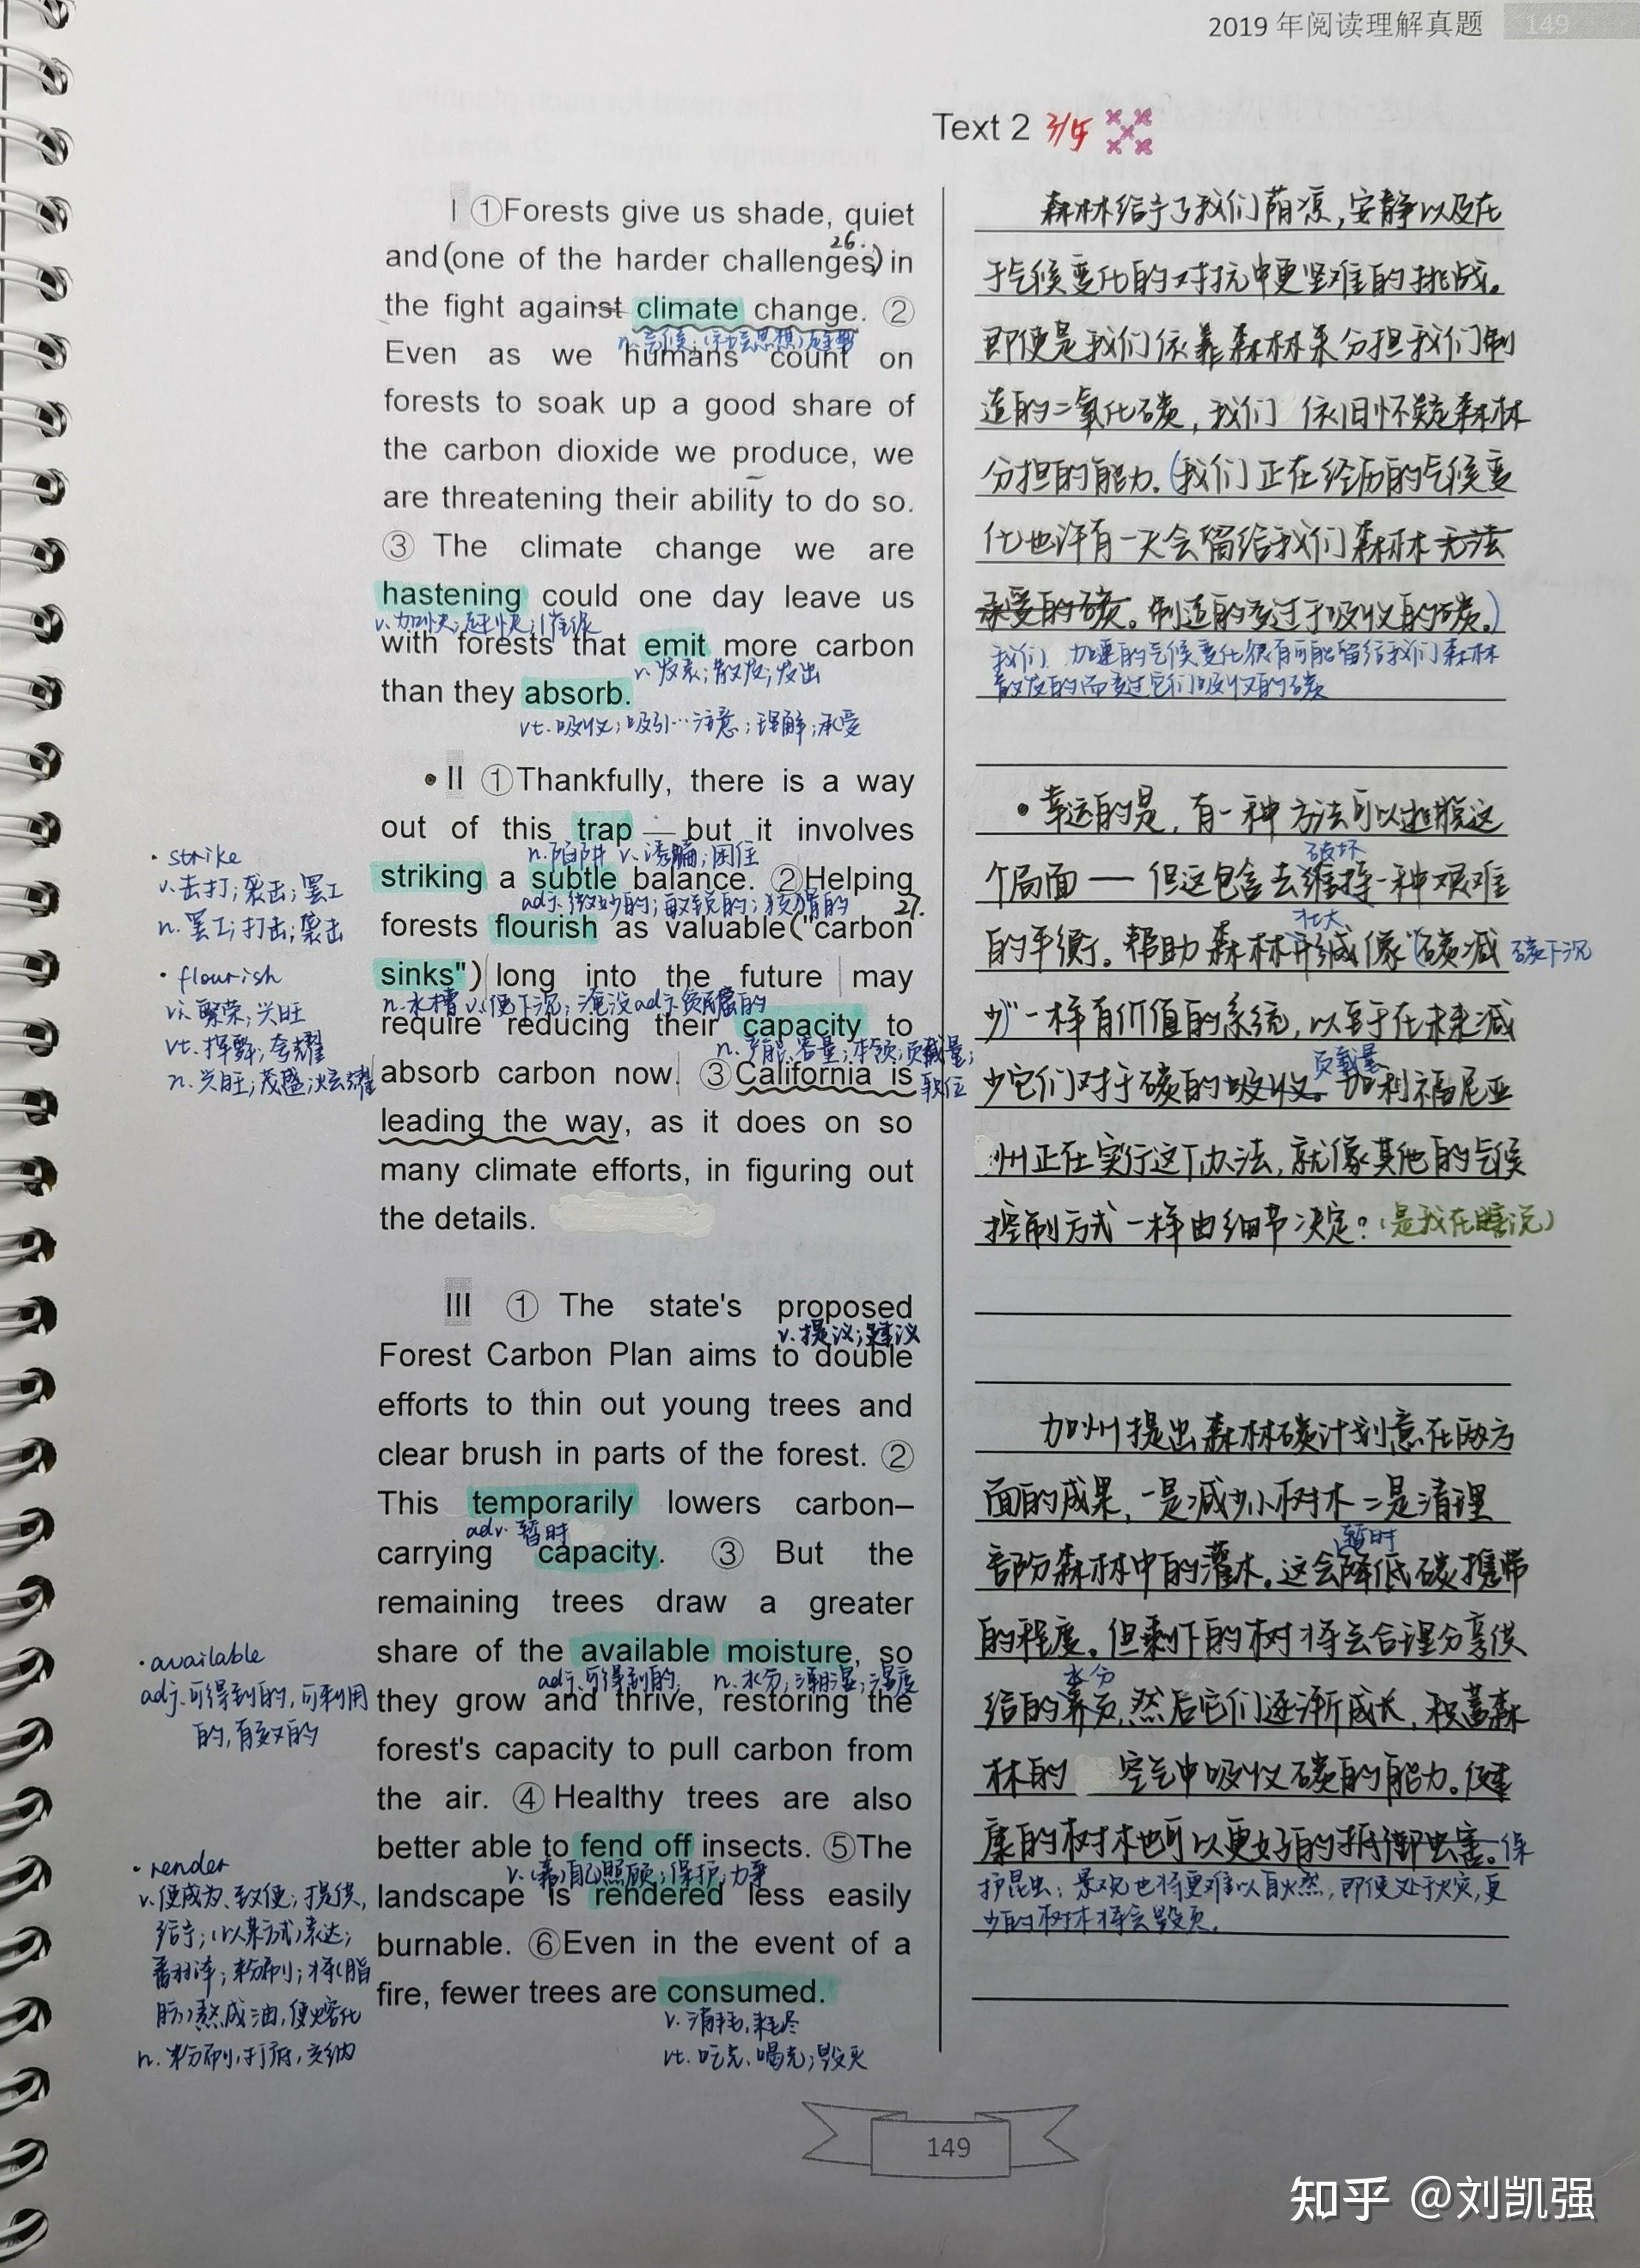 2019 年阅读理解真题 149
Text 2 3/5
Ⅰ ①Forests give us shade, quiet
26.
and (one of the harder challenges) in
the fight against climate change. ②
n.气候;(社会思想)
Even as we humans count on
forests to soak up a good share of
the carbon dioxide we produce, we
are threatening their ability to do so.
③ The climate change we are
hastening could one day leave us
v.加快;赶快;催促
with forests that emit more carbon
v.发表;散发;发出
than they absorb.
vt.吸收;吸引…注意;理解;承受
森林给予了我们荫凉,安静以及在
于气候变化的对抗中更坚难的挑战。
即使是我们依靠森林来分担我们制
造的二氧化碳,我们 依旧怀疑森林
分担的能力。(我们正在经历的气候变
化也许有一天会留给我们森林无法
承受的碳。制造的多过于吸收的碳。)
我们 加速的气候变化很有可能留给我们森林
散发的而多过它们吸收的碳
• Ⅱ ①Thankfully, there is a way
out of this trap — but it involves
n.陷阱 v.诱骗;困住
striking a subtle balance. ②Helping
adj.微妙的;敏锐的;狡猾的 27.
forests flourish as valuable ("carbon
sinks") long into the future may
n.水槽 v.使下沉;淹没
require reducing their capacity to
n.产能、容量;本领;负载量;
职位
absorb carbon now. ③California is
leading the way, as it does on so
many climate efforts, in figuring out
the details.
· strike
v.击打;袭击;罢工
n.罢工;打击;袭击
· flourish
vi.繁荣,兴旺
vt.挥舞;夸耀
n.兴旺;茂盛;炫耀
• 幸运的是,有一种方法可以逃脱这
破坏
个局面 — 但这包含去维持一种艰难
壮大
的平衡。帮助森林 像"碳减 碳下沉
少"一样有价值的系统,以至于在未来减
负载量
少它们对于碳的吸收。加利福尼亚
州正在实行这个办法,就像其他的气候
控制方式一样由细节决定?(是我在瞎说)
Ⅲ ① The state's proposed
v.提议;建议
Forest Carbon Plan aims to double
efforts to thin out young trees and
clear brush in parts of the forest. ②
This temporarily lowers carbon–
adv.暂时
carrying capacity. ③ But the
remaining trees draw a greater
share of the available moisture, so
adj.可得到的 n.水分;潮湿;湿度
they grow and thrive, restoring the
forest's capacity to pull carbon from
the air. ④ Healthy trees are also
better able to fend off insects. ⑤The
v.(靠)自己照顾;保护;力争
landscape is rendered less easily
burnable. ⑥Even in the event of a
fire, fewer trees are consumed.
v.消耗,耗尽
vt.吃完、喝完;毁灭
· available
adj.可得到的,可利用
的,有效的
· render
v.使成为、致使;提供,
给予;(以某方式)表达;
翻译;粉刷;将(脂
肪)熬成油,使熔化
n.粉刷,打底,交纳
加州提出森林碳计划意在两方
面的成果,一是减少小树木二是清理
暂时
部份森林中的灌木。这会降低碳携带
的程度。但剩下的树将会合理分享供
水分
给的养分,然后它们逐渐成长,积蓄森
林的 空气中吸收碳的能力。健
康的树木也可以更好的抵御虫害。保
护昆虫;景观也将更难以自燃,即使处于火灾,更
少的树木将会毁灭。
149
知乎 @刘凯强